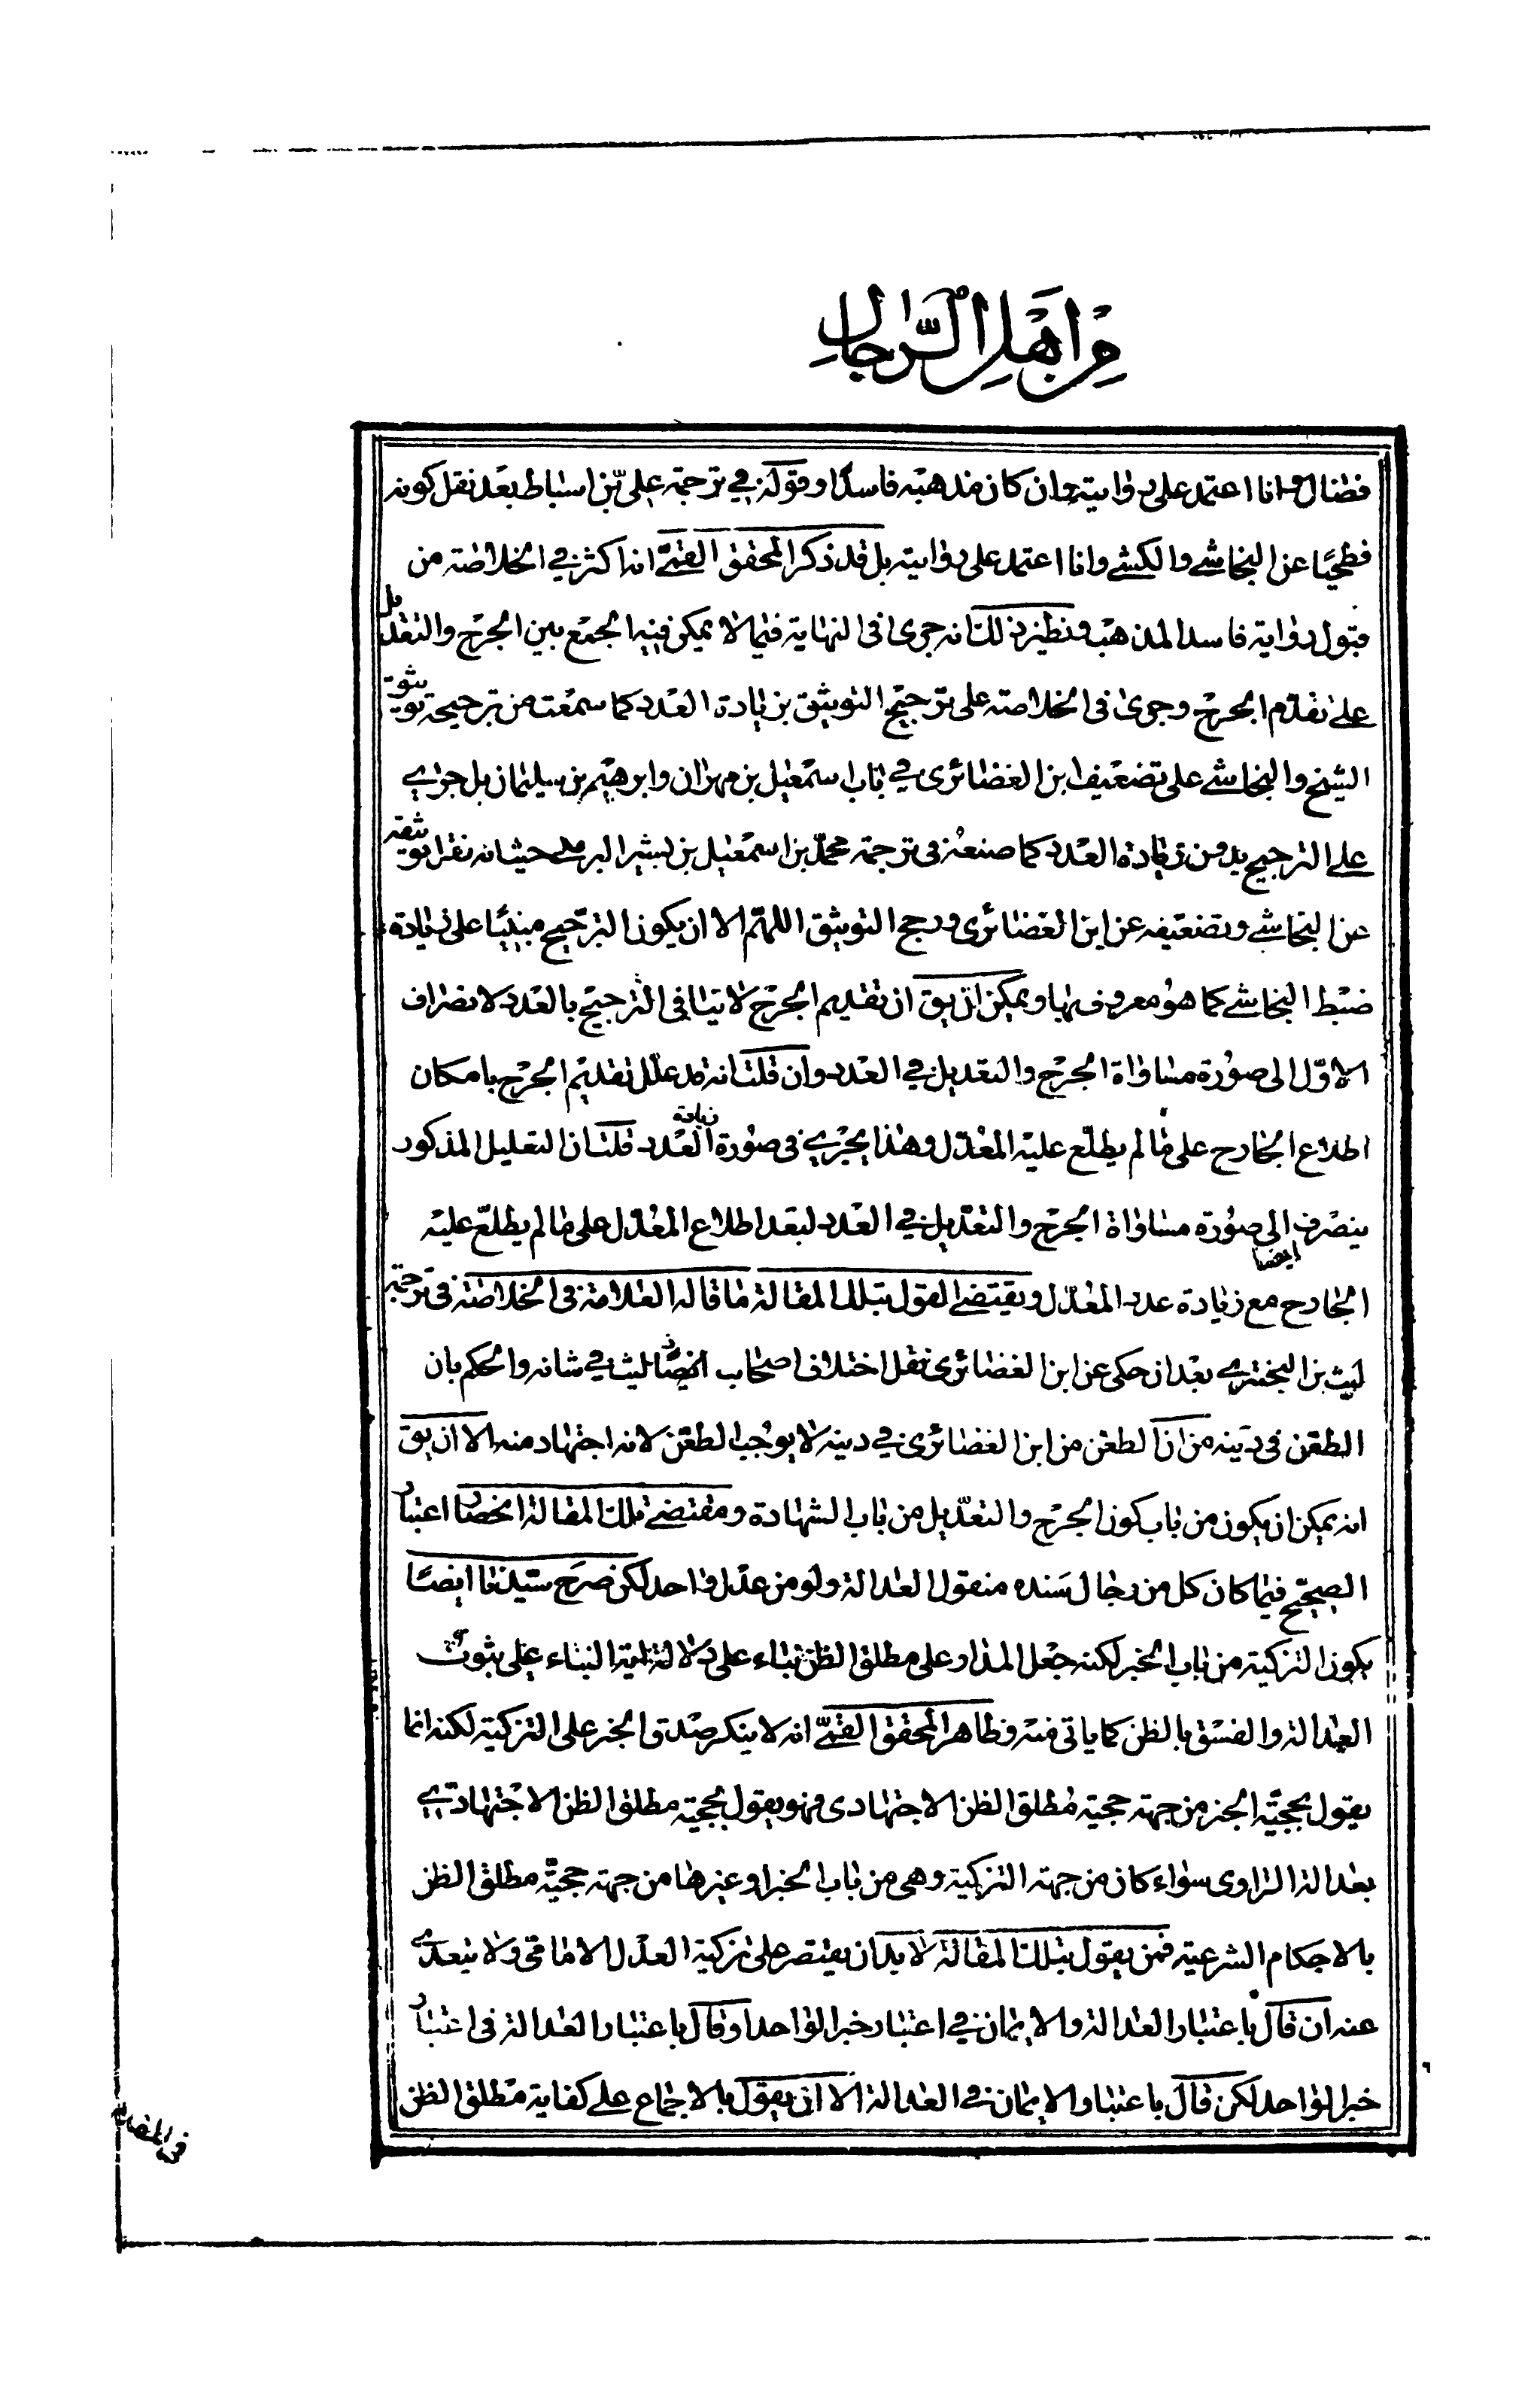 من اهل الرجال
فضال وانا اعتمد على روايته وان كان مذهبه فاسدا وقوله في ترجمة علي بن اسباط بعد نقل كونه
فطحيا عن النجاشي والكشي وانا اعتمد على روايته بل قد ذكر المحقق القمي انه اكثر في الخلاصة من
قبول رواية فاسد المذهب ونظير ذلك انه جرى في النهاية فيما لا يمكن فيه الجمع بين الجرح والتعديل
على تقدم الجرح وجرى في الخلاصة على ترجيح التوثيق بزيادة العدد كما سمعت من ترجيحه توثيق
الشيخ والنجاشي على تضعيف ابن الغضائري في باب اسمعيل بن مهران وابرهيم بن سليمان بل جرى
على الترجيح بدون زيادة العدد كما صنعه في ترجمة محمد بن اسمعيل بن بشير البرمكي حيث انه نقل توثيقه
عن النجاشي وتضعيفه عن ابن الغضائري ورجح التوثيق اللهم الا ان يكون الترجيح مبنيا على زيادة
ضبط النجاشي كما هو معروف بها ويمكن ان يق ان تقديم الجرح لا ينافي الترجيح بالعدد لانصراف
الاول الى صورة مساواة الجرح والتعديل في العدد وان قلت انه قد علل تقديم الجرح بامكان
اطلاع الجارح على ما لم يطلع عليه المعدل وهذا يجري في صورة زيادة العدد قلت ان التعليل المذكور
ينصرف ايضا الى صورة مساواة الجرح والتعديل في العدد لبعد اطلاع المعدل على ما لم يطلع عليه
الجارح مع زيادة عدد المعدل ويقتضي القول بتلك المقالة ما قاله العلامة في الخلاصة في ترجمة
ليث بن البختري بعد ان حكى عن ابن الغضائري نقل اختلاف اصحاب ليث في شانه والحكم بان
الطعن في دينه من ان الطعن من ابن الغضائري في دينه لا يوجب الطعن لانه اجتهاد منه الا ان يق
انه يمكن ان يكون من باب كون الجرح والتعديل من باب الشهادة ومقتضى تلك المقالة انحصار اعتبار
الصحيح فيما كان كل من رجال سنده منقول العدالة ولو من عدل واحد لكن صرح سيدنا ايضا
بكون التزكية من باب الخبر لكنه جعل المدار على مطلق الظن بناء على دلالة اية النباء على ثبوت
العدالة والفسق بالظن كما ياتي فيه وظاهر المحقق القمي انه لا ينكر صدق الخبر على التزكية لكنه انما
يقول بحجية الخبر من جهة حجية مطلق الظن الاجتهادي فهو يقول بحجية مطلق الظن الاجتهادي
بعدالة الراوي سواء كان من جهة التزكية وهي من باب الخبر او غيرها من جهة حجية مطلق الظن
بالاحكام الشرعية فمن يقول بتلك المقالة لا بد ان يقتصر على تزكية العدل الامامي ولا يتعدى
عنه ان قال باعتبار العدالة والايمان في اعتبار خبر الواحد او قال باعتبار العدالة في اعتبار
خبر الواحد لكن قال باعتبار الايمان في العدالة الا ان يقول بالاجماع على كفاية مطلق الظن